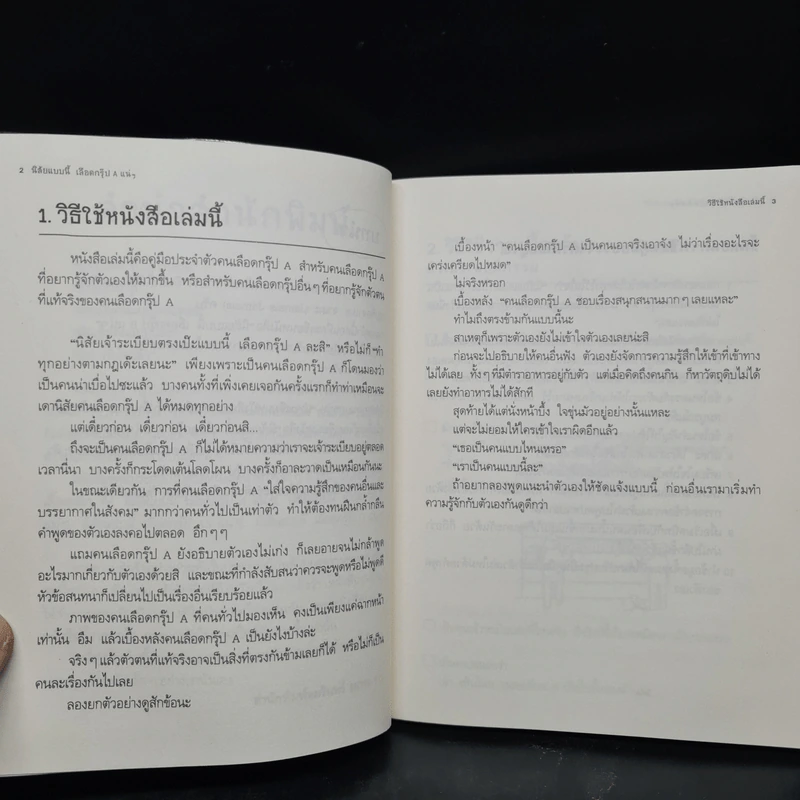 2 นิสัยแบบนี้ เลือดกรุ๊ป A แน่ๆ
1. วิธีใช้หนังสือเล่มนี้
หนังสือเล่มนี้คือคู่มือประจำตัวคนเลือดกรุ๊ป A สำหรับคนเลือดกรุ๊ป A
ที่อยากรู้จักตัวเองให้มากขึ้น หรือสำหรับคนเลือดกรุ๊ปอื่นๆ ที่อยากรู้จักตัวตน
ที่แท้จริงของคนเลือดกรุ๊ป A
"นิสัยเจ้าระเบียบตรงเป๊ะแบบนี้ เลือดกรุ๊ป A ละสิ" หรือไม่ก็ "ทำ
ทุกอย่างตามกฎเด๊ะเลยนะ" เพียงเพราะเป็นคนเลือดกรุ๊ป A ก็โดนมองว่า
เป็นคนน่าเบื่อไปซะแล้ว บางคนทั้งที่เพิ่งเคยเจอกันครั้งแรกก็ทำท่าเหมือนจะ
เดานิสัยคนเลือดกรุ๊ป A ได้หมดทุกอย่าง
แต่เดี๋ยวก่อน เดี๋ยวก่อน เดี๋ยวก่อนสิ...
ถึงจะเป็นคนเลือดกรุ๊ป A ก็ไม่ได้หมายความว่าเราจะเจ้าระเบียบอยู่ตลอด
เวลานี่นา บางครั้งก็กระโดดเต้นโลดโผน บางครั้งก็อาละวาดเป็นเหมือนกันนะ
ในขณะเดียวกัน การที่คนเลือดกรุ๊ป A "ใส่ใจความรู้สึกของคนอื่นและ
บรรยากาศในสังคม" มากกว่าคนทั่วไปเป็นเท่าตัว ทำให้ต้องทนฝืนกล้ำกลืน
คำพูดของตัวเองลงคอไปตลอด อึกๆๆ
แถมคนเลือดกรุ๊ป A ยังอธิบายตัวเองไม่เก่ง ก็เลยอายจนไม่กล้าพูด
อะไรมากเกี่ยวกับตัวเองด้วยสิ และขณะที่กำลังสับสนว่าควรจะพูดหรือไม่พูดดี
หัวข้อสนทนาก็เปลี่ยนไปเป็นเรื่องอื่นเรียบร้อยแล้ว
ภาพของคนเลือดกรุ๊ป A ที่คนทั่วไปมองเห็น คงเป็นเพียงแค่ฉากหน้า
เท่านั้น อืม แล้วเบื้องหลังคนเลือดกรุ๊ป A เป็นยังไงบ้างล่ะ
จริงๆ แล้วตัวตนที่แท้จริงอาจเป็นสิ่งที่ตรงกันข้ามเลยก็ได้ หรือไม่ก็เป็น
คนละเรื่องกันไปเลย
ลองยกตัวอย่างดูสักข้อนะ
วิธีใช้หนังสือเล่มนี้ 3
เบื้องหน้า "คนเลือดกรุ๊ป A เป็นคนเอาจริงเอาจัง ไม่ว่าเรื่องอะไรจะ
เคร่งเครียดไปหมด"
ไม่จริงหรอก
เบื้องหลัง "คนเลือดกรุ๊ป A ชอบเรื่องสนุกสนานมากๆ เลยแหละ"
ทำไมถึงตรงข้ามกันแบบนี้นะ
สาเหตุก็เพราะตัวเองยังไม่เข้าใจตัวเองเลยน่ะสิ
ก่อนจะไปอธิบายให้คนอื่นฟัง ตัวเองยังจัดการความรู้สึกให้เข้าที่เข้าทาง
ไม่ได้เลย ทั้งๆ ที่มีตำราอาหารอยู่กับตัว แต่เมื่อคิดถึงคนกิน ก็หาวัตถุดิบไม่ได้
เลยยังทำอาหารไม่ได้สักที
สุดท้ายก็ได้แต่นั่งหน้าบึ้ง ใจขุ่นมัวอยู่อย่างนั้นแหละ
แต่จะไม่ยอมให้ใครเข้าใจเราผิดอีกแล้ว
"เธอเป็นคนแบบไหนเหรอ"
"เราเป็นคนแบบนี้ละ"
ถ้าอยากลองพูดแนะนำตัวเองให้ชัดแจ้งแบบนี้ ก่อนอื่นเรามาเริ่มทำ
ความรู้จักกับตัวเองกันดูดีกว่า